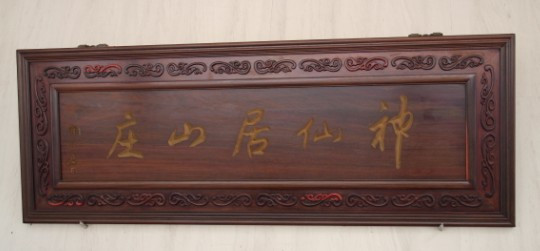 神仙居山庄